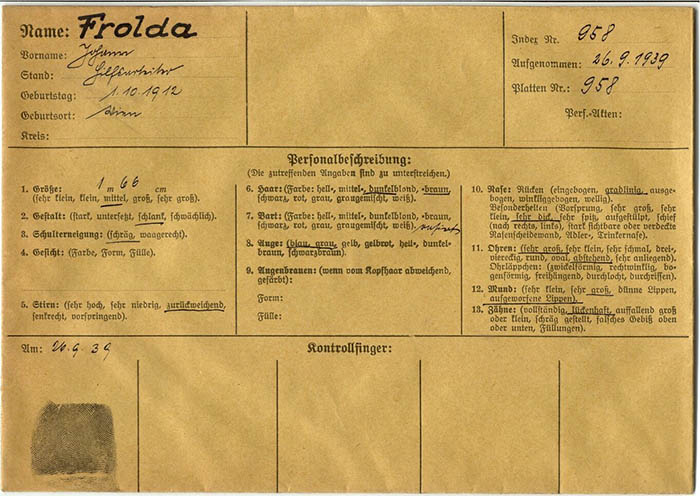 Name: Frolda
Vorname: Johann
Stand: Hilfsarbeiter
Geburtstag: 1.10.1912
Geburtsort: Wien
Kreis:
Index Nr. 958
Aufgenommen: 26.9.1939
Platten Nr.: 958
Pers.-Akten:
Personalbeschreibung:
(Die zutreffenden Angaben sind zu unterstreichen.)
1. Größe: 1 m 66 cm
(sehr klein, klein, mittel, groß, sehr groß).
2. Gestalt: (stark, untersetzt, schlank, schwächlich).
3. Schulterneigung: (schräg, waagerecht).
4. Gesicht: (Farbe, Form, Fülle).
5. Stirn: (sehr hoch, sehr niedrig, zurückweichend,
senkrecht, vorspringend).
6. Haar: (Farbe: hell-, mittel-, dunkelblond, -braun,
schwarz, rot, grau, graugemischt, weiß).
7. Bart: (Farbe: hell-, mittel-, dunkelblond, -braun,
schwarz, rot, grau, graugemischt, weiß).
8. Auge: (blau, grau, gelb, gelbrot, hell-, dunkel-
braun, schwarzbraun).
9. Augenbrauen: (wenn vom Kopfhaar abweichend,
gefärbt):
Form:
Fülle:
10. Nase: Rücken (eingebogen, gradlinig, ausge-
bogen, winkliggebogen, wellig).
Besonderheiten (Vorsprung, sehr groß, sehr
klein, sehr dick, sehr spitz, aufgestülpt, schief
(nach rechts, links), stark sichtbare oder verdeckte
Nasenscheidewand, Adler-, Trinkernase).
11. Ohren: (sehr groß, sehr klein, sehr schmal, drei-,
viereckig, rund, oval, abstehend, sehr anliegend).
Ohrläppchen: (zwickelförmig, rechtwinklig, bo-
genförmig, freihängend, durchlocht, durchrissen).
12. Mund: (sehr klein, sehr groß, dünne Lippen,
aufgeworfene Lippen).
13. Zähne: (vollständig, lückenhaft, auffallend groß
oder klein, schräg gestellt, falsches Gebiß oben
oder unten, Füllungen).
Am: 26.9.39
Kontrollfinger: